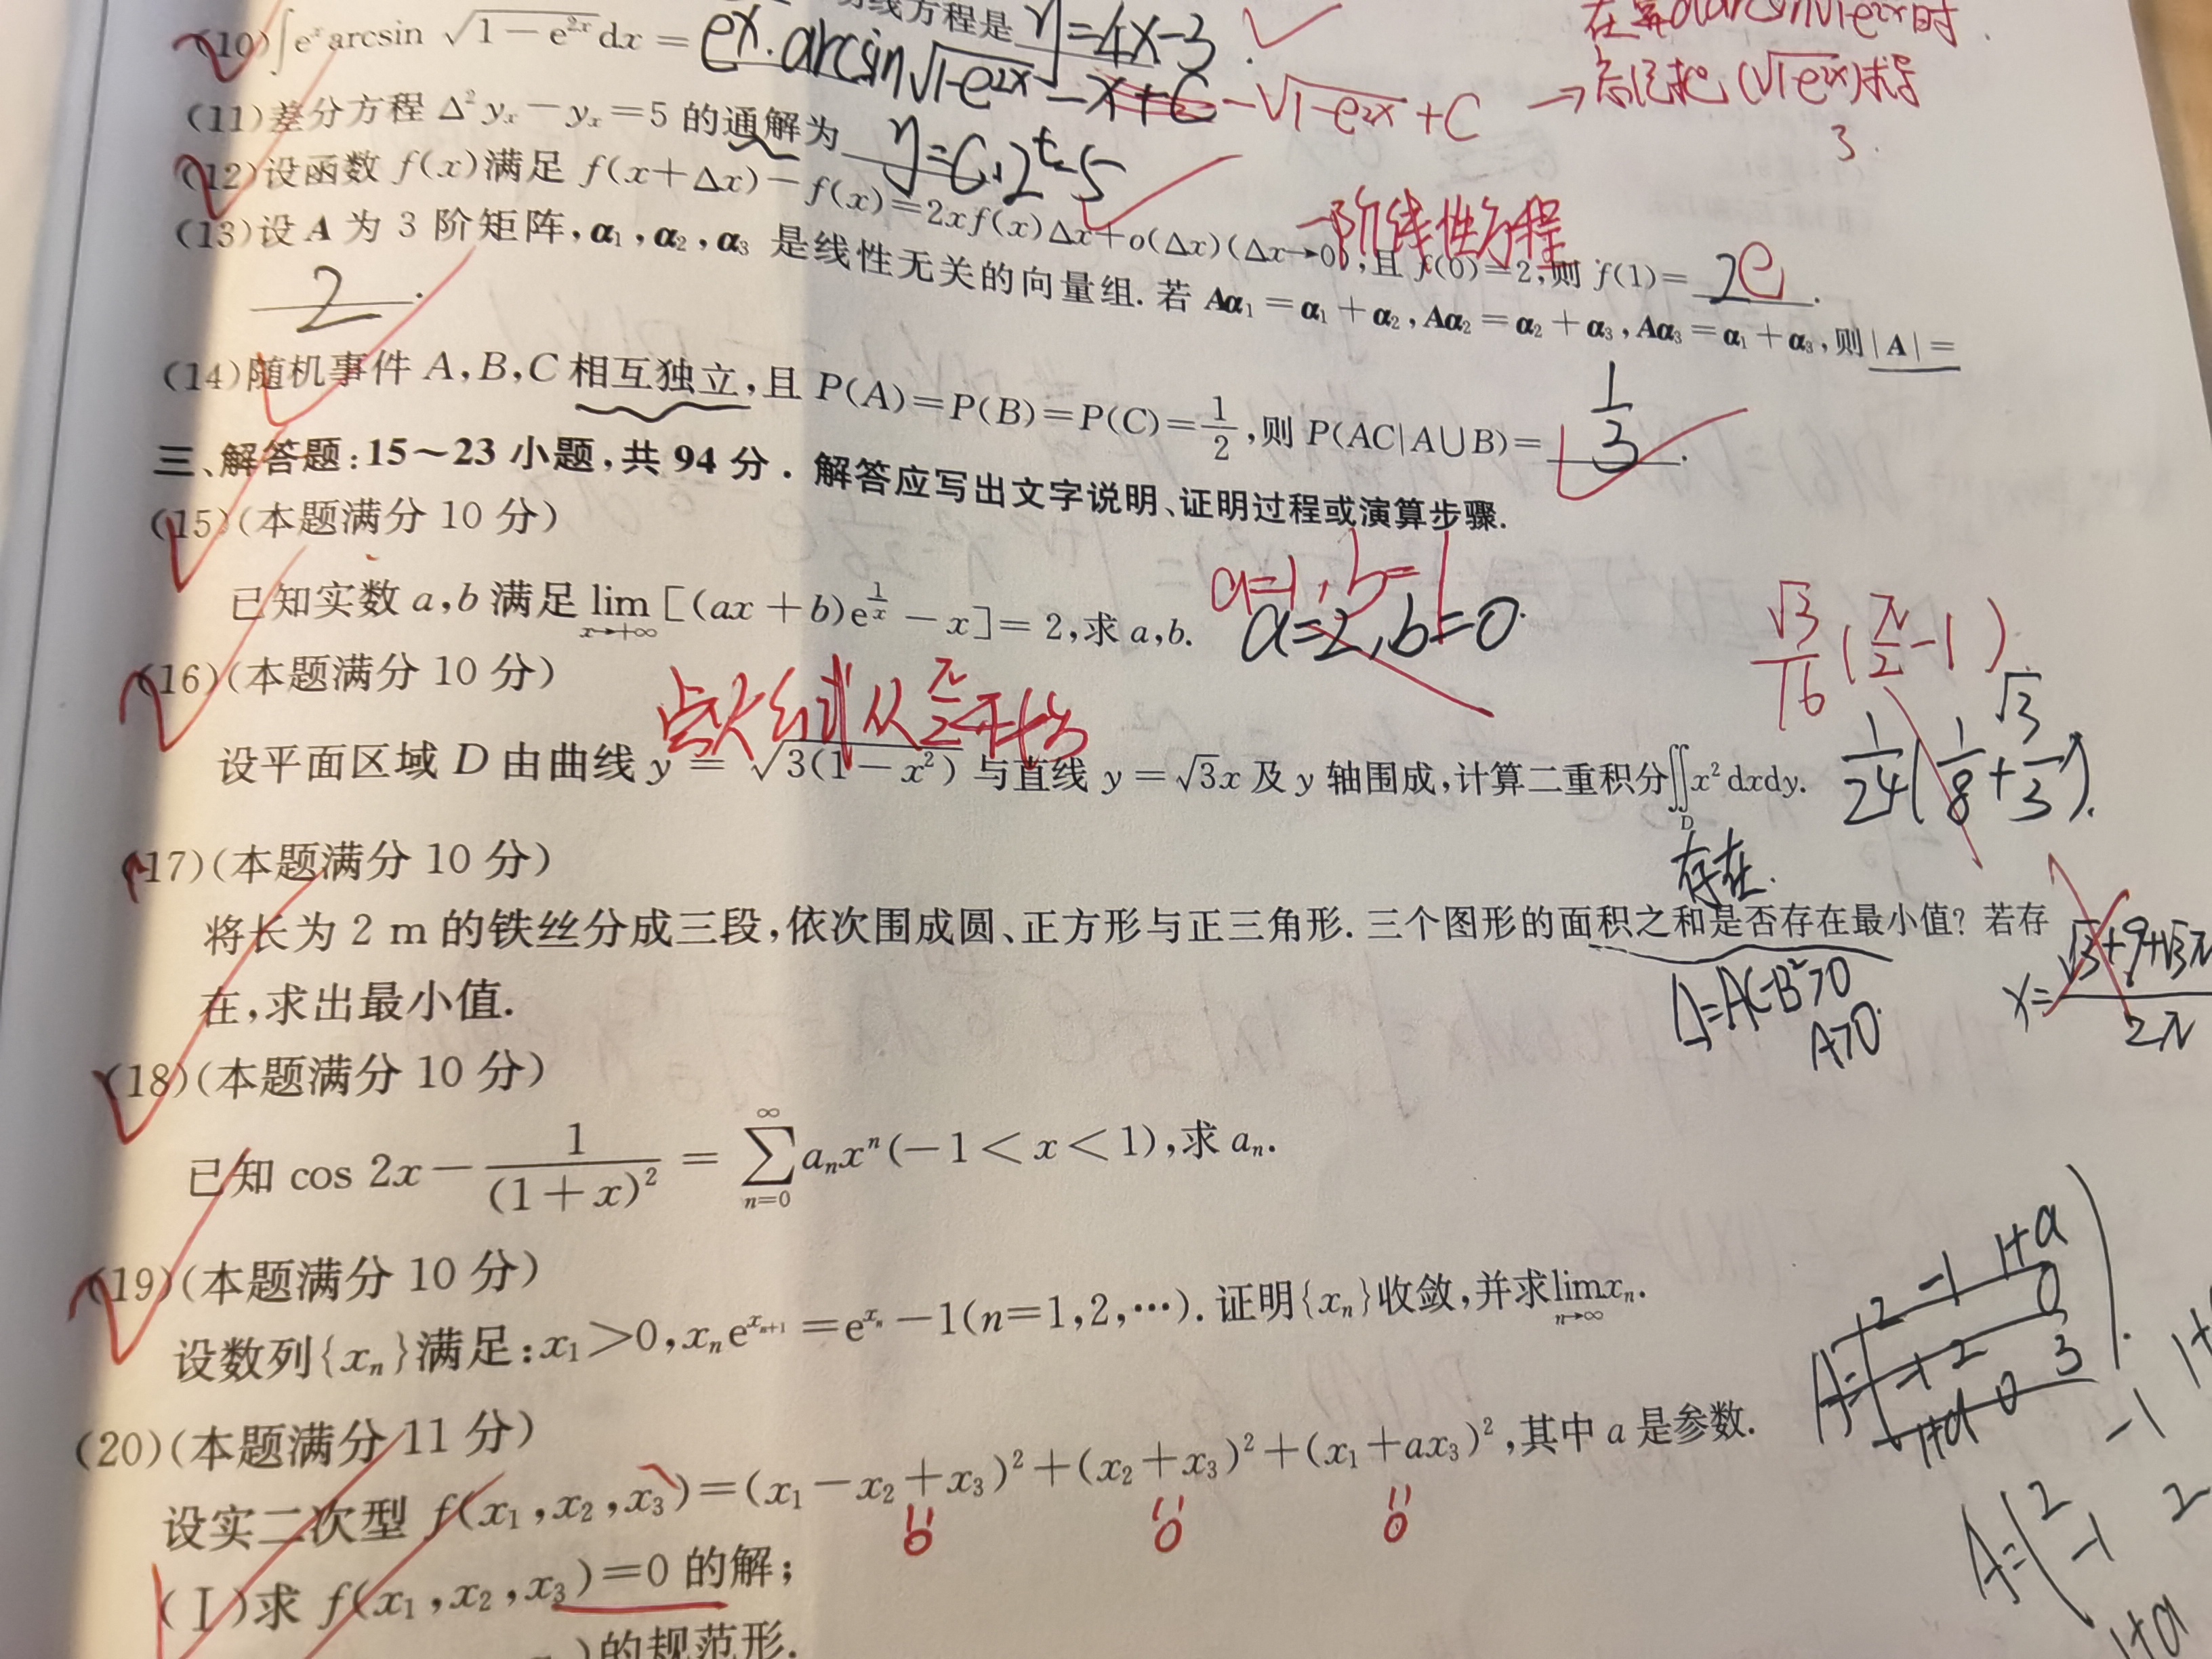 切线方程是 y=4x-3.
在算d(arcsin√1-e^{2x})时
(10)∫e^x arcsin √(1-e^{2x}) dx = e^x·arcsin√1-e^{2x} -x+C -√1-e^{2x}+C → 忘记把(√1-e^{2x})求导
3.
(11)差分方程 Δ²y_x-y_x=5 的通解为 y=C·2^t-5
(12)设函数 f(x)满足 f(x+Δx)-f(x)=2xf(x)Δx+o(Δx)(Δx→0),且 f(0)=2,则 f(1)= 2e .
一阶线性方程
(13)设 A 为 3 阶矩阵,α₁,α₂,α₃ 是线性无关的向量组. 若 Aα₁=α₁+α₂,Aα₂=α₂+α₃,Aα₃=α₁+α₃,则|A|=
2 .
(14)随机事件 A,B,C 相互独立,且 P(A)=P(B)=P(C)=1/2,则 P(AC|A∪B)= 1/3 .
三、解答题:15~23 小题,共 94 分. 解答应写出文字说明、证明过程或演算步骤.
(15)(本题满分 10 分)
a=1,b=1
已知实数 a,b 满足 lim_{x→+∞}[(ax+b)e^{1/x}-x]=2,求 a,b. a=2,b=0.
(16)(本题满分 10 分)
点火公式从π/2开始
√3/16(π/2-1)
设平面区域 D 由曲线 y=√(3(1-x²)) 与直线 y=√3x 及 y 轴围成,计算二重积分∬_D x²dxdy. 1/24(1/8+√3/3).
(17)(本题满分 10 分)
存在.
将长为 2 m 的铁丝分成三段,依次围成圆、正方形与正三角形. 三个图形的面积之和是否存在最小值? 若存
在,求出最小值.
Δ=AC-B²>0
A>0.
(18)(本题满分 10 分)
已知 cos 2x-1/(1+x)²=∑_{n=0}^{∞}a_nx^n(-1<x<1),求 a_n.
(19)(本题满分 10 分)
设数列{x_n}满足:x₁>0,x_ne^{x_{n+1}}=e^{x_n}-1(n=1,2,…). 证明{x_n}收敛,并求lim_{n→∞}x_n.
(20)(本题满分 11 分)
设实二次型 f(x₁,x₂,x₃)=(x₁-x₂+x₃)²+(x₂+x₃)²+(x₁+ax₃)²,其中 a 是参数.
0 0 0
(Ⅰ)求 f(x₁,x₂,x₃)=0 的解;
)的规范形.
2 -1 1+a
-1 2 0
1+a 0 3
A=(2 -1
-1 2
1+a